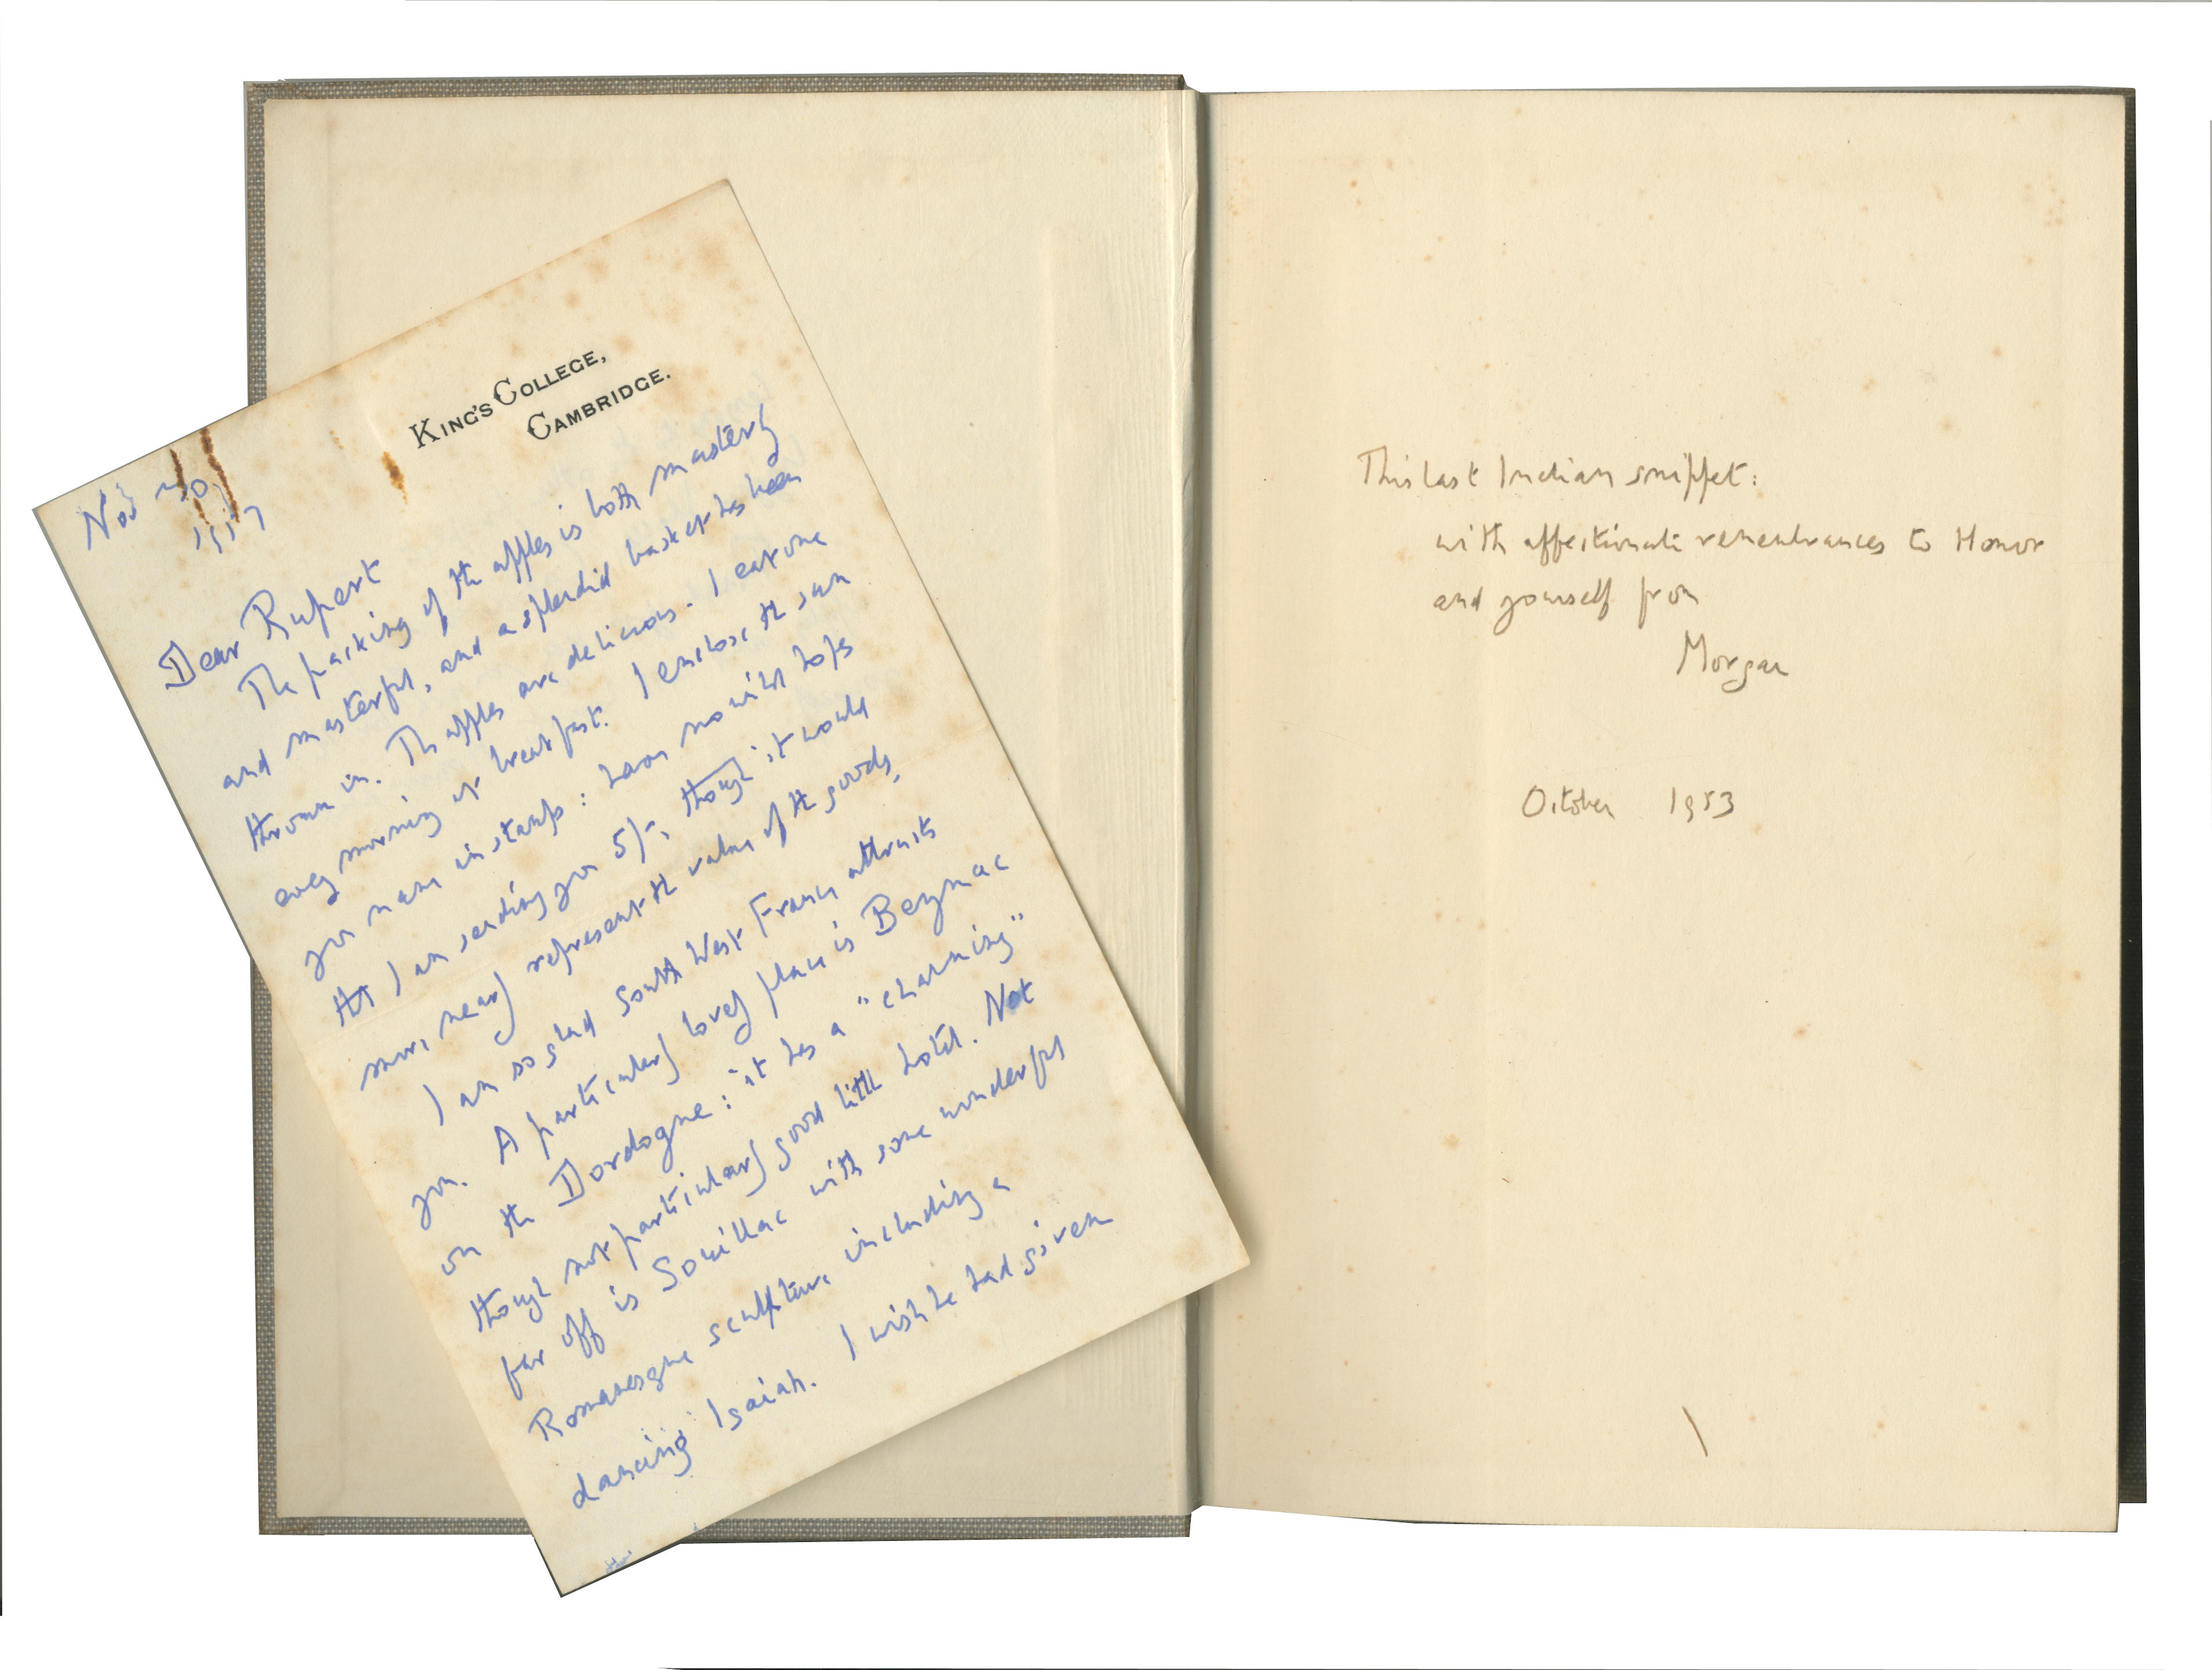 KING'S COLLEGE,
CAMBRIDGE.
Dear Rupert
The packing of the apples is both masterly
and masterful, and a splendid basket has been
thrown in. The apples are delicious. I eat one
every morning at breakfast. I enclose the sum
you name in stamps: have no wild hopes
that I am sending you 5/-, though it would
more nearly represent the value of the goods.
I am so glad South West France attracts
you. A particularly lovely place is Beynac
on the Dordogne: it has a "charming"
though not particularly good little hotel. Not
far off is Souillac with some wonderful
Romanesque sculpture including a
dancing Isaiah. I wish he had given
This last Indian snippet:
with affectionate remembrances to Honor
and yourself from
Morgan
October 1953